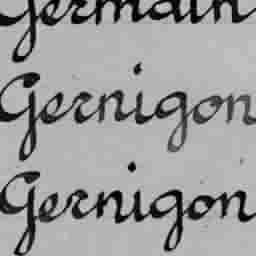 Germain
Gernigon
Gernigon